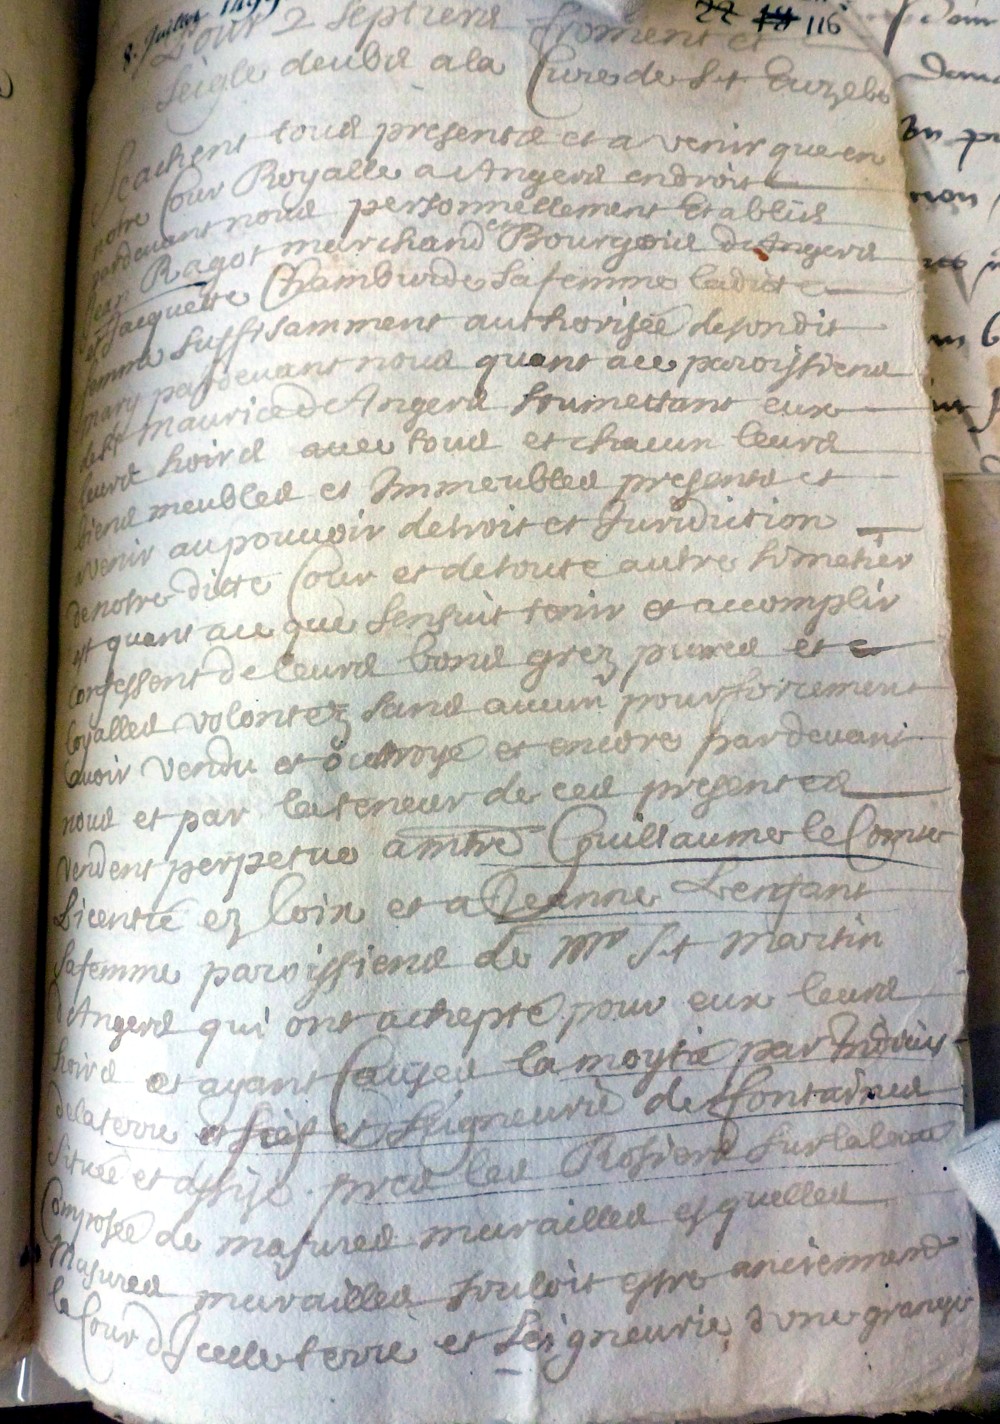 8. Juillet 1499
22 18 116
Pour 2 septiers froment et
seigle deubs a la Cure de St Euzebe
Scachent tous presents et a venir que en
notre Cour Royalle a Angers endroit
pardevant nous personnellement Establis
Jean Ragot marchand et Bourgois d'Angers
et Jacquette Chambirde sa femme ladite
femme suffisamment authorisée desondit
mary pardevant nous quant a ce paroissiens
de St Maurice d'Angers soumettant eux
leurs hoirs avec tous et chacun leurs
biens meubles et Immeubles presents et
avenir au pouvoir detroit et Juridiction
de notre dicte Cour et de toute autre si metier
est quant a ce que sensuit tenir et accomplir
Confessent de leurs bons grez pures et
loyalles volontez sans aucun pourforcement
avoir vendu et outroyé et encore pardevant
nous et par la teneur de ces presentes
vendent perpetuo a mtre Guillaume le Cornu
Licentié ez loix et a Jeanne Lenfant
sa femme paroissiens de Mr St Martin
d'Angers qui ont achepté pour eux leurs
hoirs et ayant Causes la moytié par Indivis
de la terre et fief et Seigneurie des fontaines
située et assise pres les Rosiers sur
Composée de masures murailles esquelles
Masures murailles souloit estre anciennement
la Cour d'Icelle terre et Seigneurie d'une grange